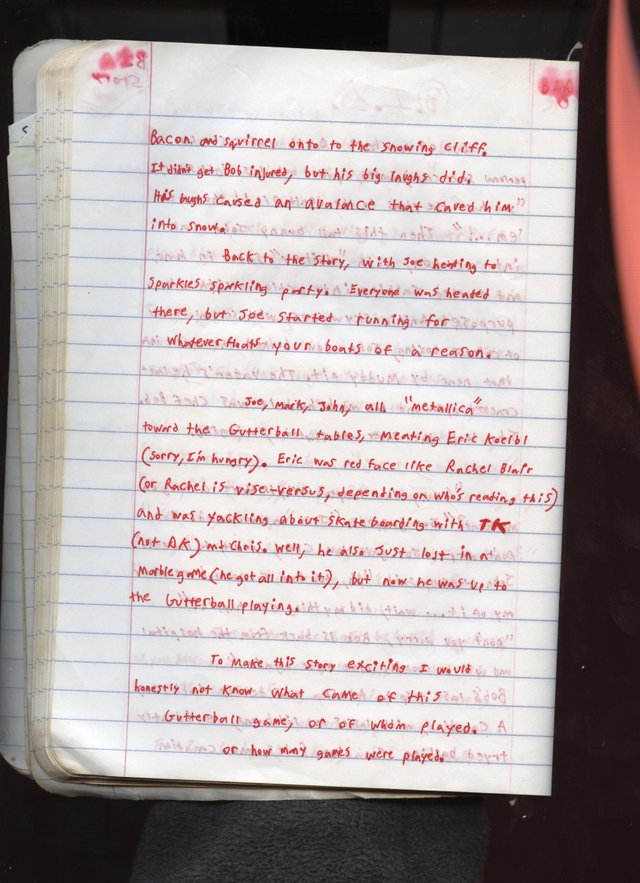 BIA
Story
Bacon and squirrel onto to the snowing cliff.
It didn't get Bob injured, but his big laughs did.
His laughs caused an avalance that caved him
into snow.
Back to "the story", with Joe heating to
Sparkles sparkling party. Everyone was headed
there, but Joe started running for
whatever floats your boats of a reason.
Joe, Mark, John, all "metallica"
toward the Gutterball tables, meating Eric Koeibl
(sorry, I'm hungry). Eric was red face like Rachel Blair
(or Rachel is vise-versus, depending on who's reading this)
and was yackling about skate boarding with TK
(not AK) and Chris. Well, he also just lost in a
marble game (he got all into it), but now he was up to
the Gutterball playing.
To make this story exciting I would
honestly not know what came of this
Gutterball game, or of whom played.
or how many games were played.